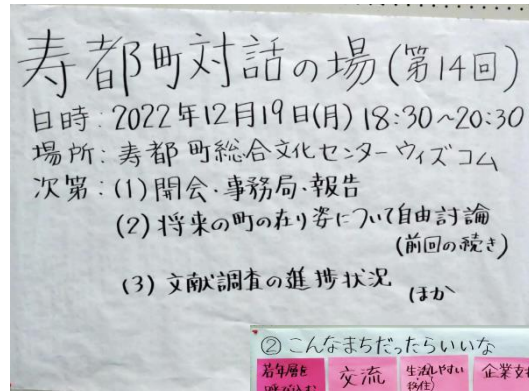 寿都町対話の場(第14回)
日時:2022年12月19日(月) 18:30~20:30
場所:寿都町総合文化センターウィズコム
次第:(1)開会・事務局・報告
(2)将来の町の在り姿について自由討論
(前回の続き)
(3)文献調査の進捗状況
(ほか
②こんなまちだったらいいな
若年層を
呼び込む
交流
生活しやすい
(移住)
企業